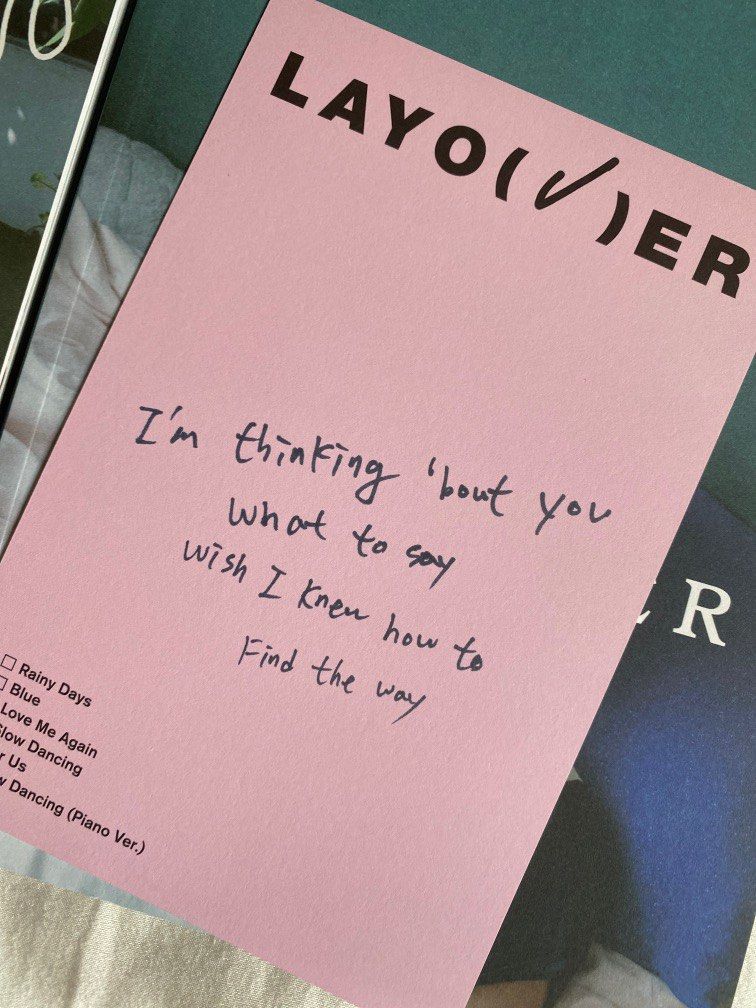 LAYO(V)ER
I'm thinking 'bout you
what to say
wish I knew how to
Find the way
ER
Rainy Days
Blue
Love Me Again
Slow Dancing
r Us
w Dancing (Piano Ver.)